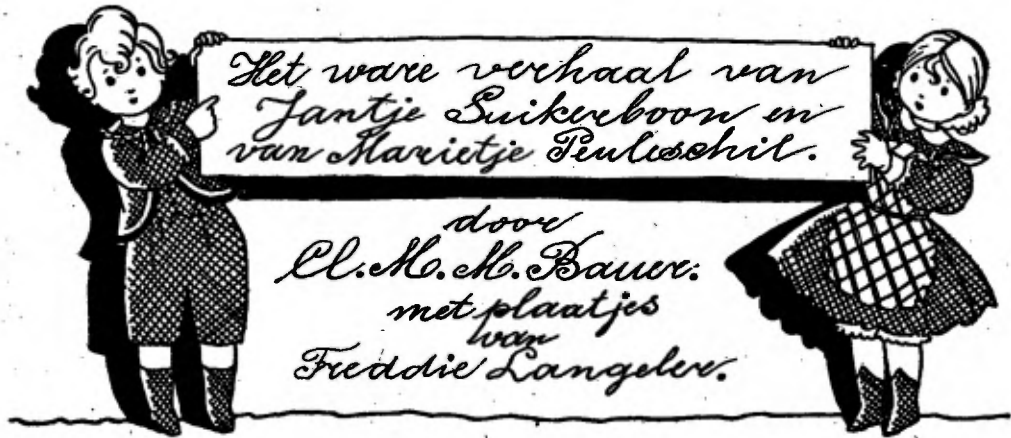 Het ware verhaal van
Jantje Suikerboon en
van Marietje Peuleschil.
door
Cl. M. M. Bauer.
met plaatjes
van
Freddie Langeler.